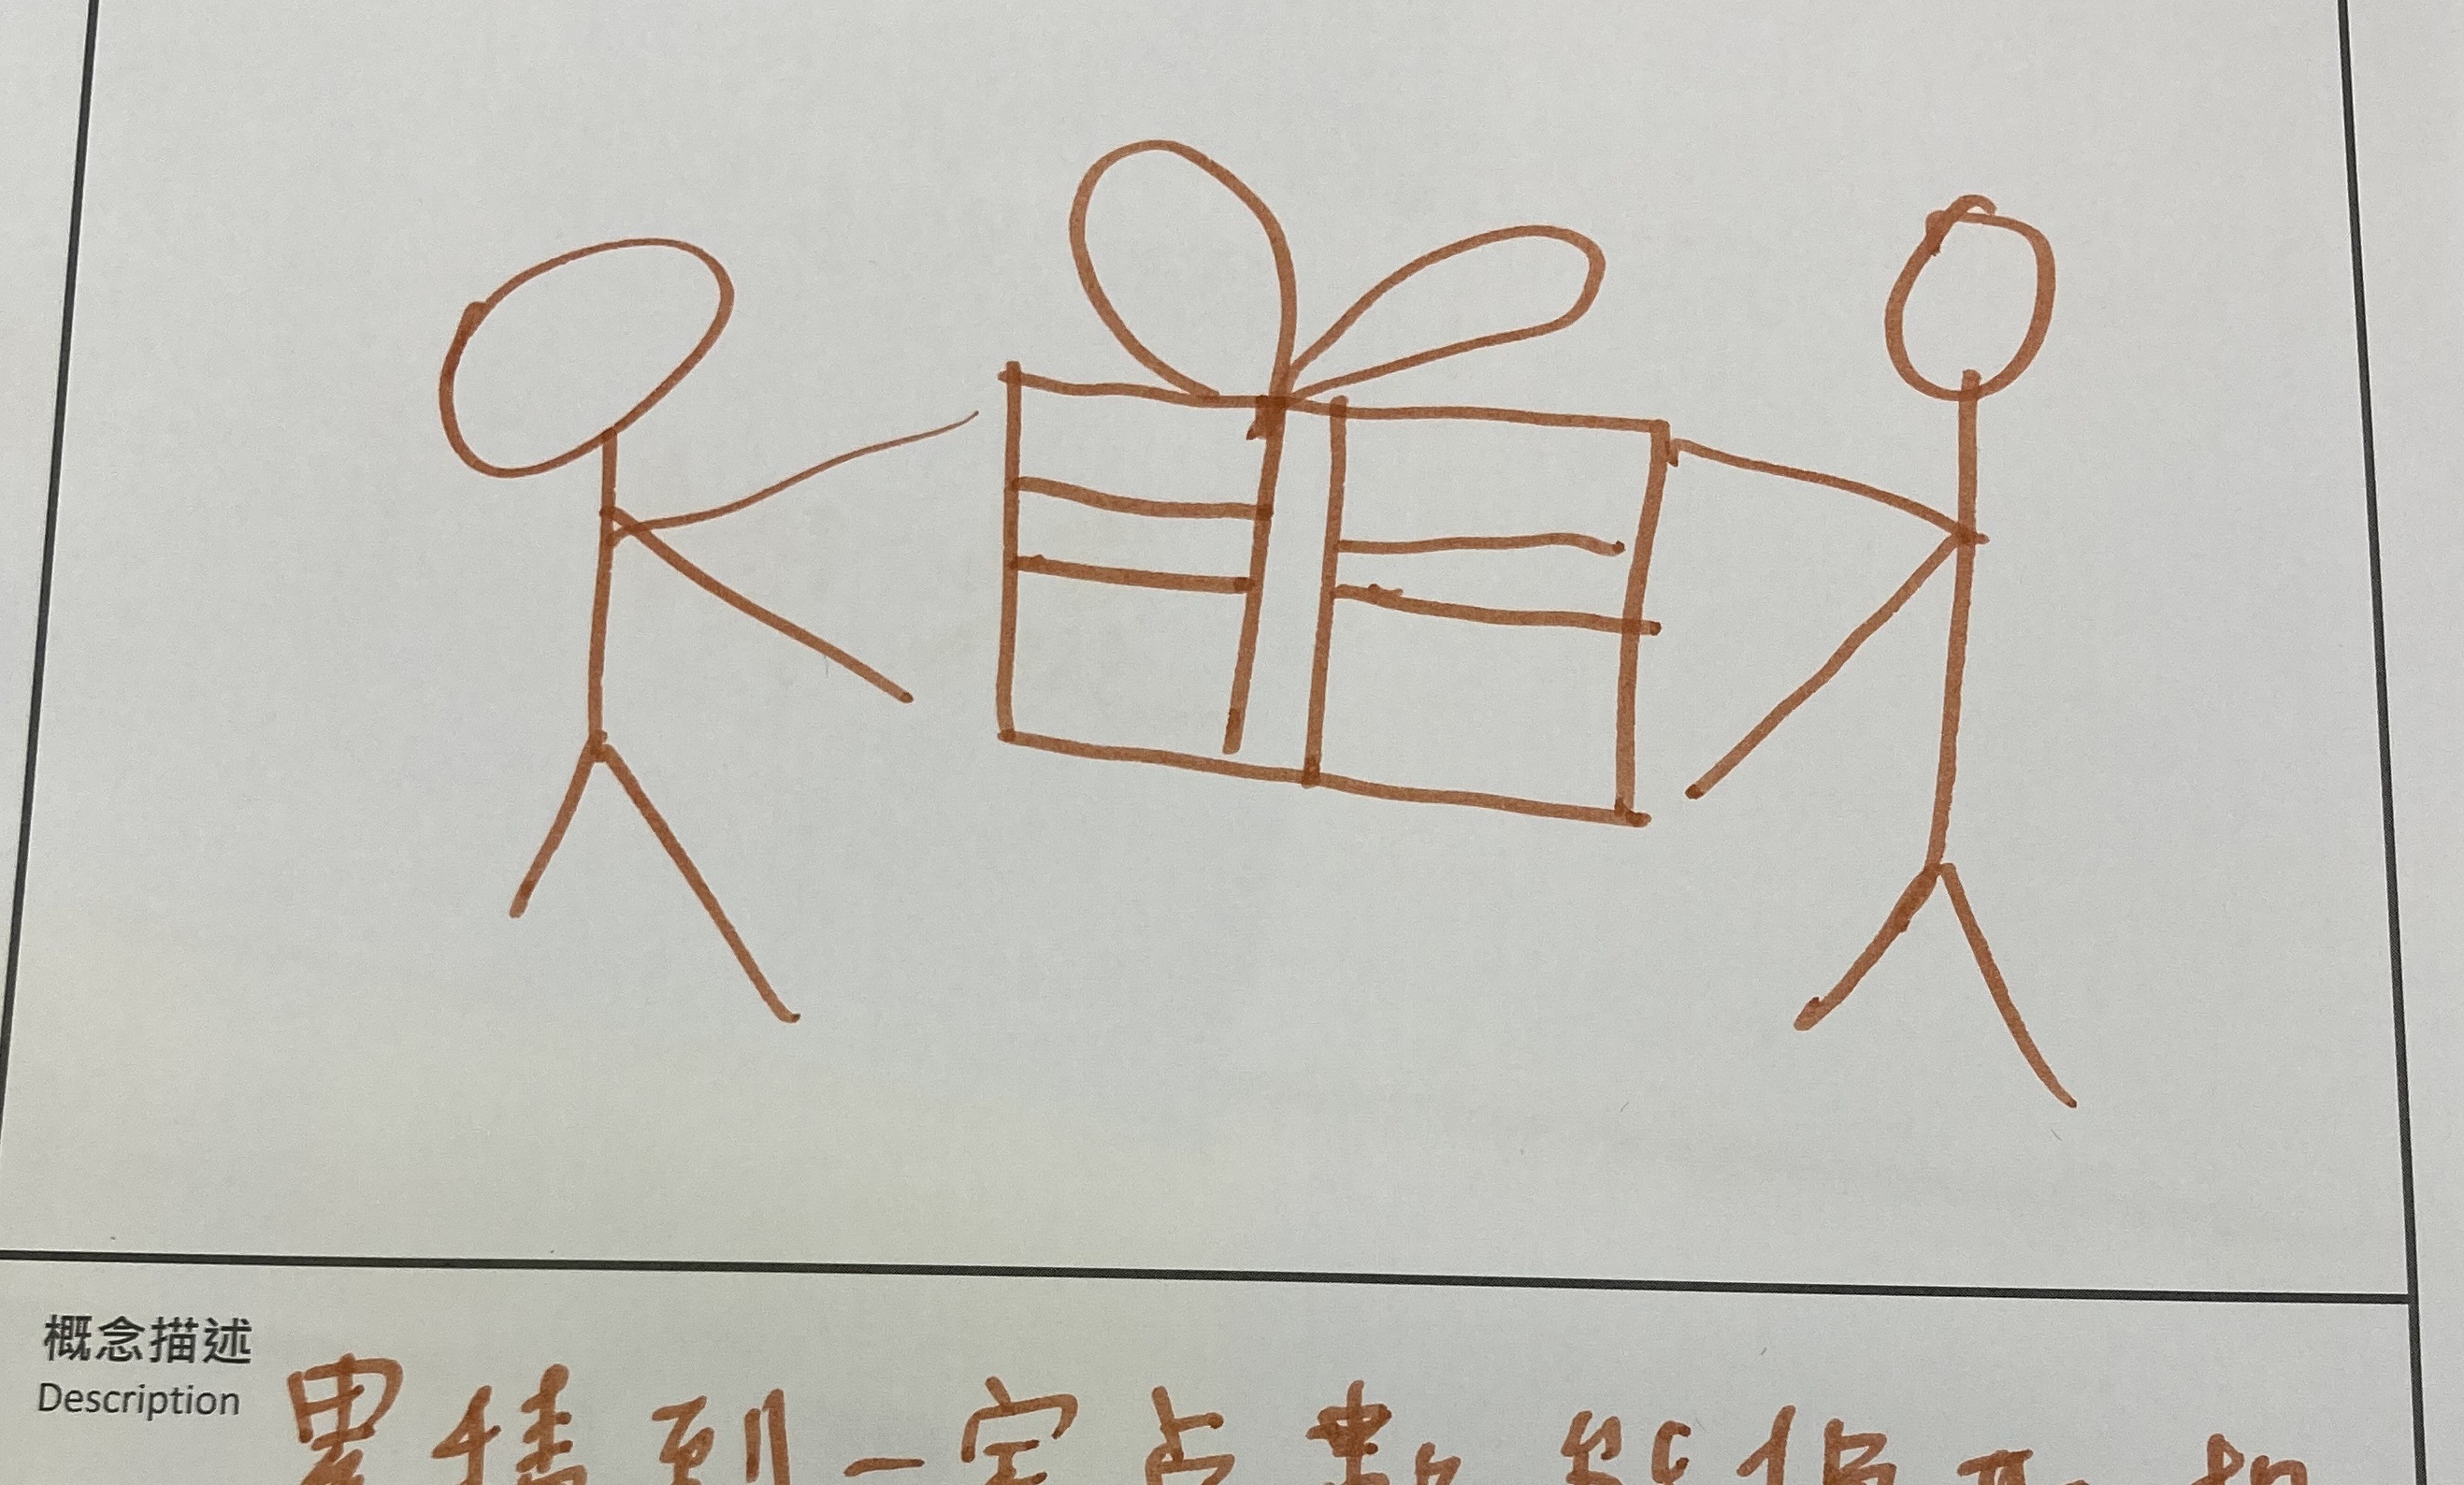 概念描述
Description
累積到一定点數能換取